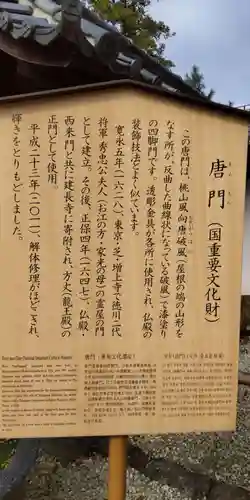 唐門
からもん
（国重要文化財）
この唐門は、桃山風向唐破風（屋根の端の山形を
なす所が、反曲した曲線状になっている破風）で漆塗り
の四脚門です。透彫金具が各所に使用され、仏殿の
装飾技法とよく似ています。
寛永五年（一六二八）、東京・芝・増上寺で徳川二代
将軍 秀忠公夫人（お江の方・家光の母）の霊屋の門
として建立。その後、正保四年（一六四七）、仏殿・
西来門と共に建長寺に寄附され、方丈（龍王殿）の
正門として使用。
平成二十三年（二〇一一）、解体修理がほどこされ、
輝きをとりもどしました。